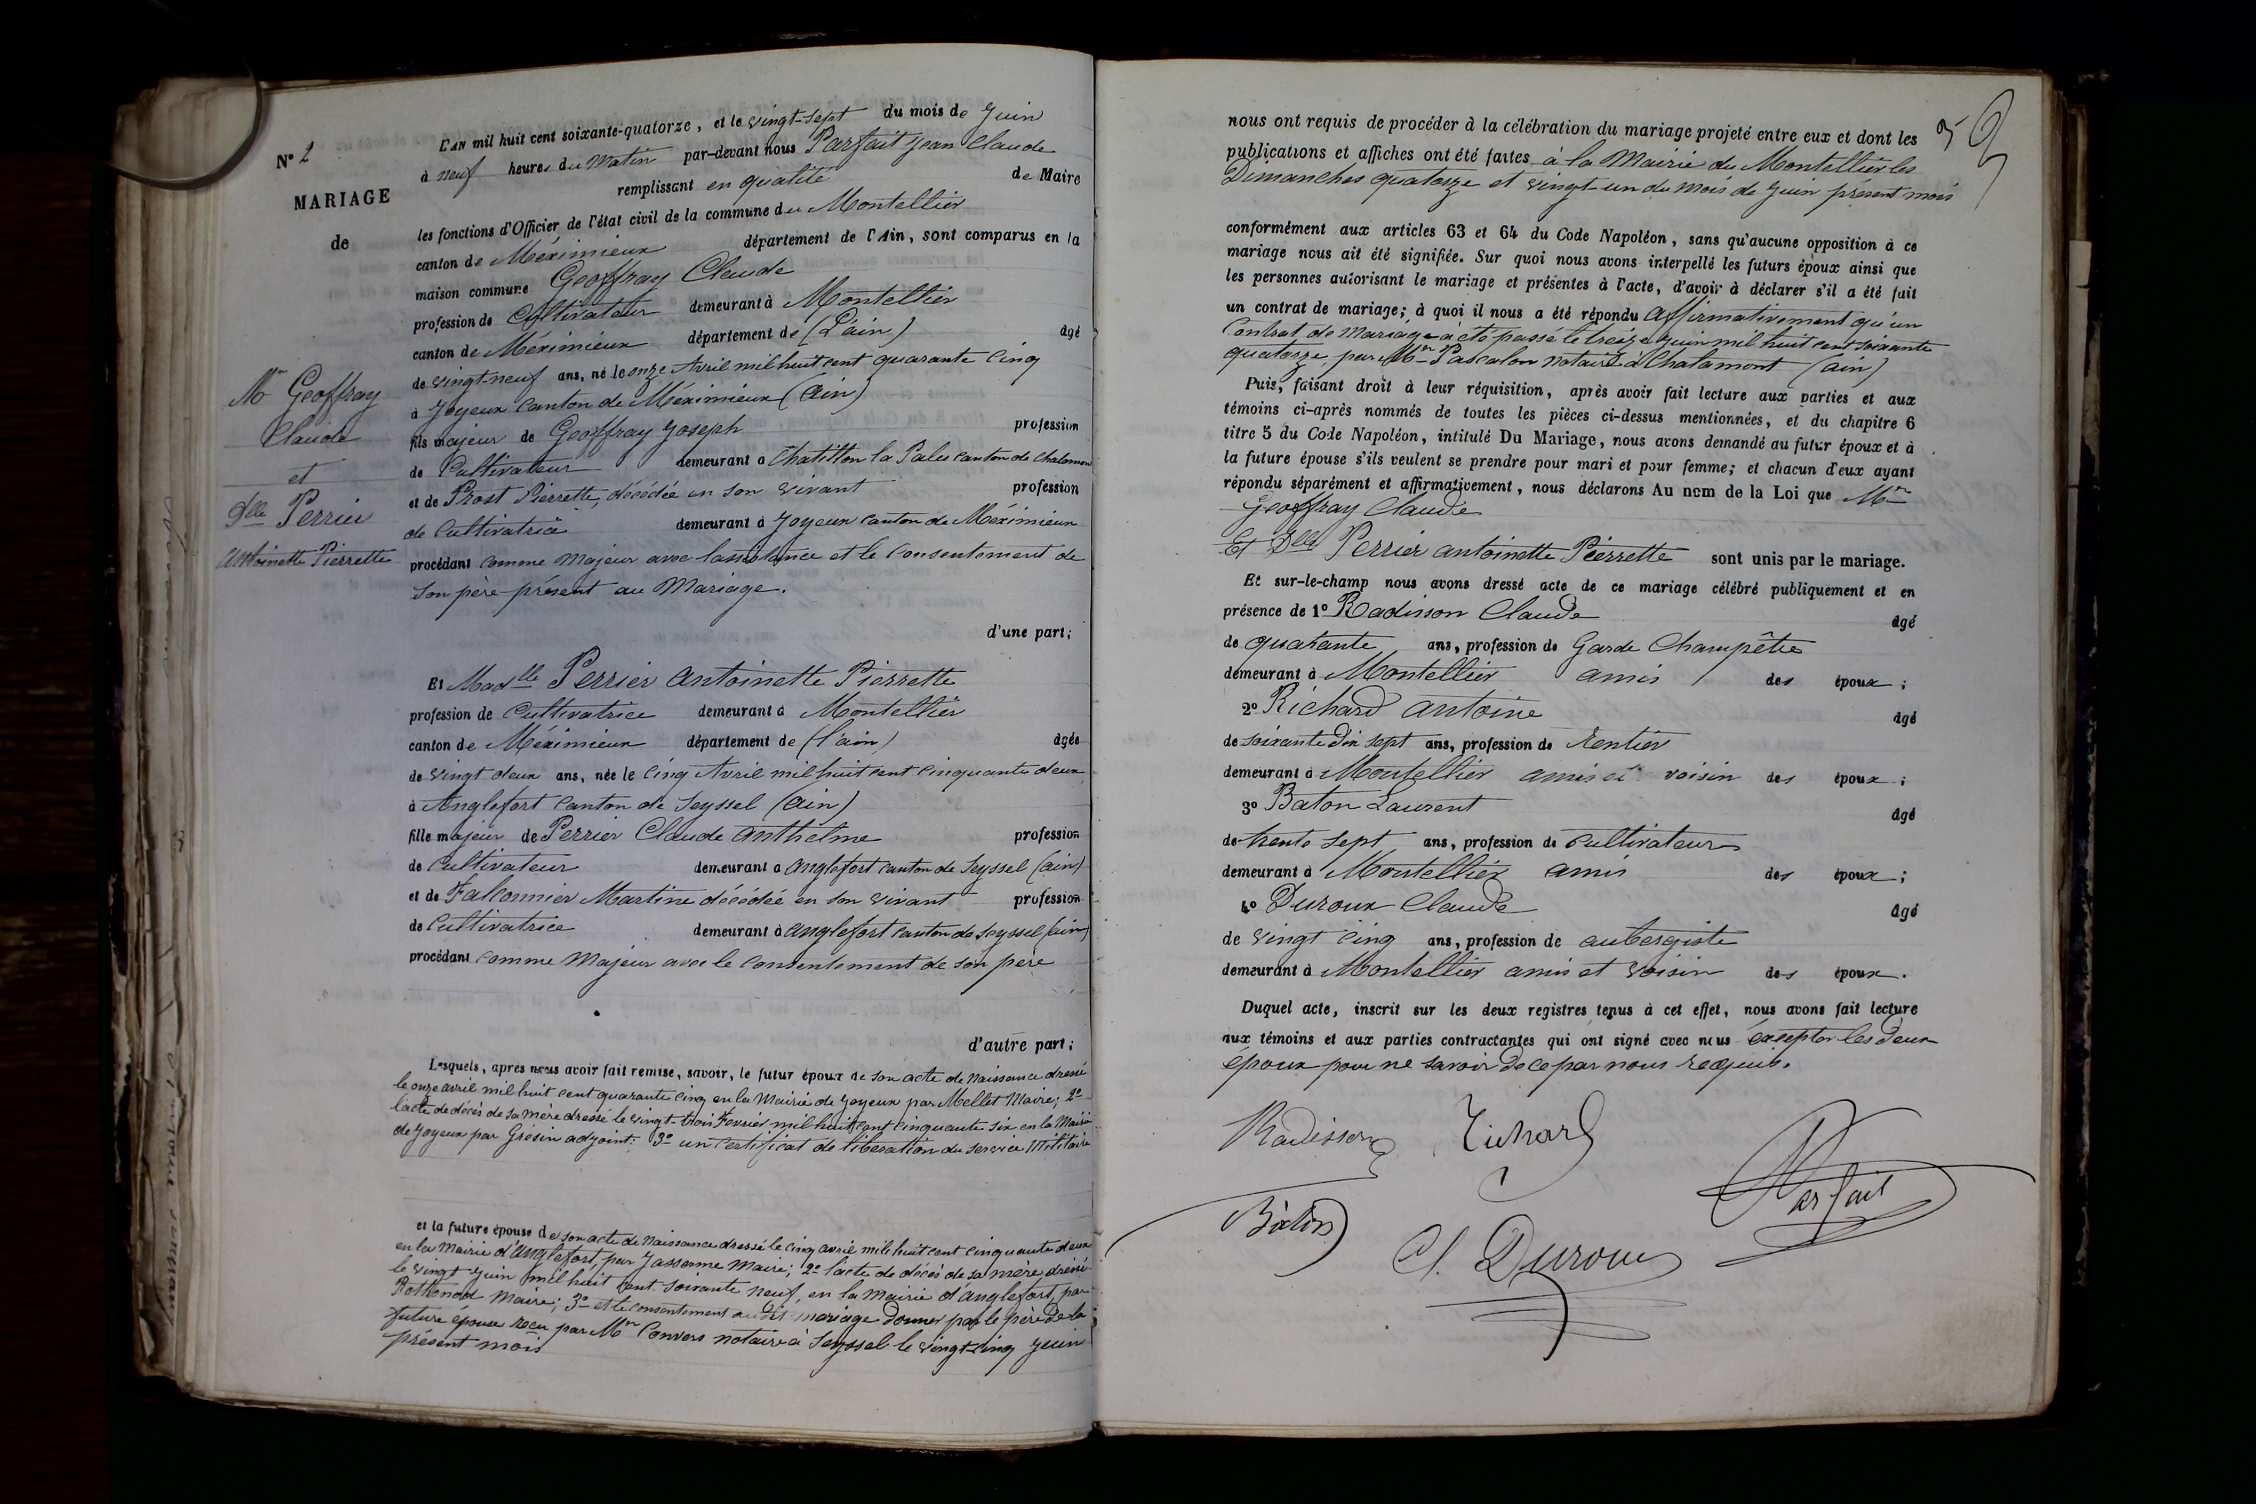 N° 2
MARIAGE
de
Mr Geoffray
Claude
et
Dlle Perrier
Antoinette Pierrette
L'AN mil huit cent soixante-quatorze, et le vingt-sept du mois de Juin
à neuf heures du Matin par-devant nous Parfait Jean Claude
remplissant en qualité de Maire
les fonctions d'Officier de l'état civil de la commune du Montellier
canton de Méximieux département de l'Ain, sont comparus en la
maison commune Geoffray Claude
profession de Cultivateur demeurant à Montellier
canton de Méximieux département de (L'ain) âgé
de vingt-neuf ans, né le onze Avril mil huit cent quarante cinq
à Joyeux canton de Méximieux (Ain)
fils majeur de Geoffray Joseph profession
de Cultivateur demeurant à Chatillon la Palue canton de Chalamon
et de Prost Pierrette, décédée en son vivant profession
de Cultivatrice demeurant à Joyeux canton de Méximieux
procédant comme Majeur avec l'assistance et le consentement de
son père présent au Mariage.
d'une part;
Et Madlle Perrier Antoinette Pierrette
profession de Cultivatrice demeurant à Montellier
canton de Méximieux département de (l'ain) âgée
de vingt deux ans, née le cinq Avril mil huit cent cinquante deux
à Anglefort canton de Seyssel (Ain)
fille majeur de Perrier Claude Anthelme profession
de Cultivateur demeurant à Anglefort canton de Seyssel (ain)
et de Falconnier Martine décédée en son vivant profession
de Cultivatrice demeurant à Anglefort canton de Seyssel (ain)
procédant comme Majeur avec le consentement de son père
d'autre part;
Lesquels, après nous avoir fait remise, savoir, le futur époux de son acte de Naissance dressé
le onze avril mil huit cent quarante cinq en la Mairie de Joyeux par Mellet Maire; 2°
l'acte de décès de sa mère dressé le vingt-trois Fevrier mil huit cent cinquante six en la Mairie
de Joyeux par Grésin adjoint: 3° un certificat de libération du service Militaire
et la future épouse de son acte de Naissance dressé le cinq avril mil huit cent cinquante deux
en la Mairie d'Anglefort, par Jasserme Maire; 2° l'acte de décès de sa mère dressé
le vingt Juin mil huit cent soixante neuf, en la Mairie d'Anglefort, par
Maire; 3° et le consentement au dit mariage donner par le père de la
future épouse reçu par Mtre Convers notaire à Seyssel le vingt-cinq Juin
présent mois
59
nous ont requis de procéder à la célébration du mariage projeté entre eux et dont les
publications et affiches ont été faites à la Mairie du Montellier les
Dimanches quatorze et vingt-un du mois de Juin présent mois
conformément aux articles 63 et 64 du Code Napoléon, sans qu'aucune opposition à ce
mariage nous ait été signifiée. Sur quoi nous avons interpellé les futurs époux ainsi que
les personnes autorisant le mariage et présentes à l'acte, d'avoir à déclarer s'il a été fait
un contrat de mariage; à quoi il nous a été répondu Affirmativement qu'un
Contrat de Mariage a été passé le treize Juin mil huit cent soixante
quatorze par Mtre Pascalon notaire à Chalamont (ain)
Puis, faisant droit à leur réquisition, après avoir fait lecture aux parties et aux
témoins ci-après nommés de toutes les pièces ci-dessus mentionnées, et du chapitre 6
titre 5 du Code Napoléon, intitulé Du Mariage, nous avons demandé au futur époux et à
la future épouse s'ils veulent se prendre pour mari et pour femme; et chacun d'eux ayant
répondu séparément et affirmativement, nous déclarons Au nom de la Loi que Mr
Geoffray Claude
Et Dlle Perrier Antoinette Pierrette sont unis par le mariage.
Et sur-le-champ nous avons dressé acte de ce mariage célébré publiquement et en
présence de 1° Radisson Claude âgé
de quarante ans, profession de Garde Champêtre
demeurant à Montellier amis des époux;
2° Richard Antoine âgé
de soixante dix sept ans, profession de Rentier
demeurant à Montellier amis et voisin des époux;
3° Baton Laurent âgé
de trente sept ans, profession de cultivateur
demeurant à Montellier amis des époux;
4° Duroux Claude âgé
de vingt cinq ans, profession de aubergiste
demeurant à Montellier amis et voisin des époux.
Duquel acte, inscrit sur les deux registres tenus à cet effet, nous avons fait lecture
aux témoins et aux parties contractantes qui ont signé avec nous éxcepter les deux
époux pour ne savoir de ce par nous requis.
Radisson Richard
Parfait
Bâton
Cl. Duroux